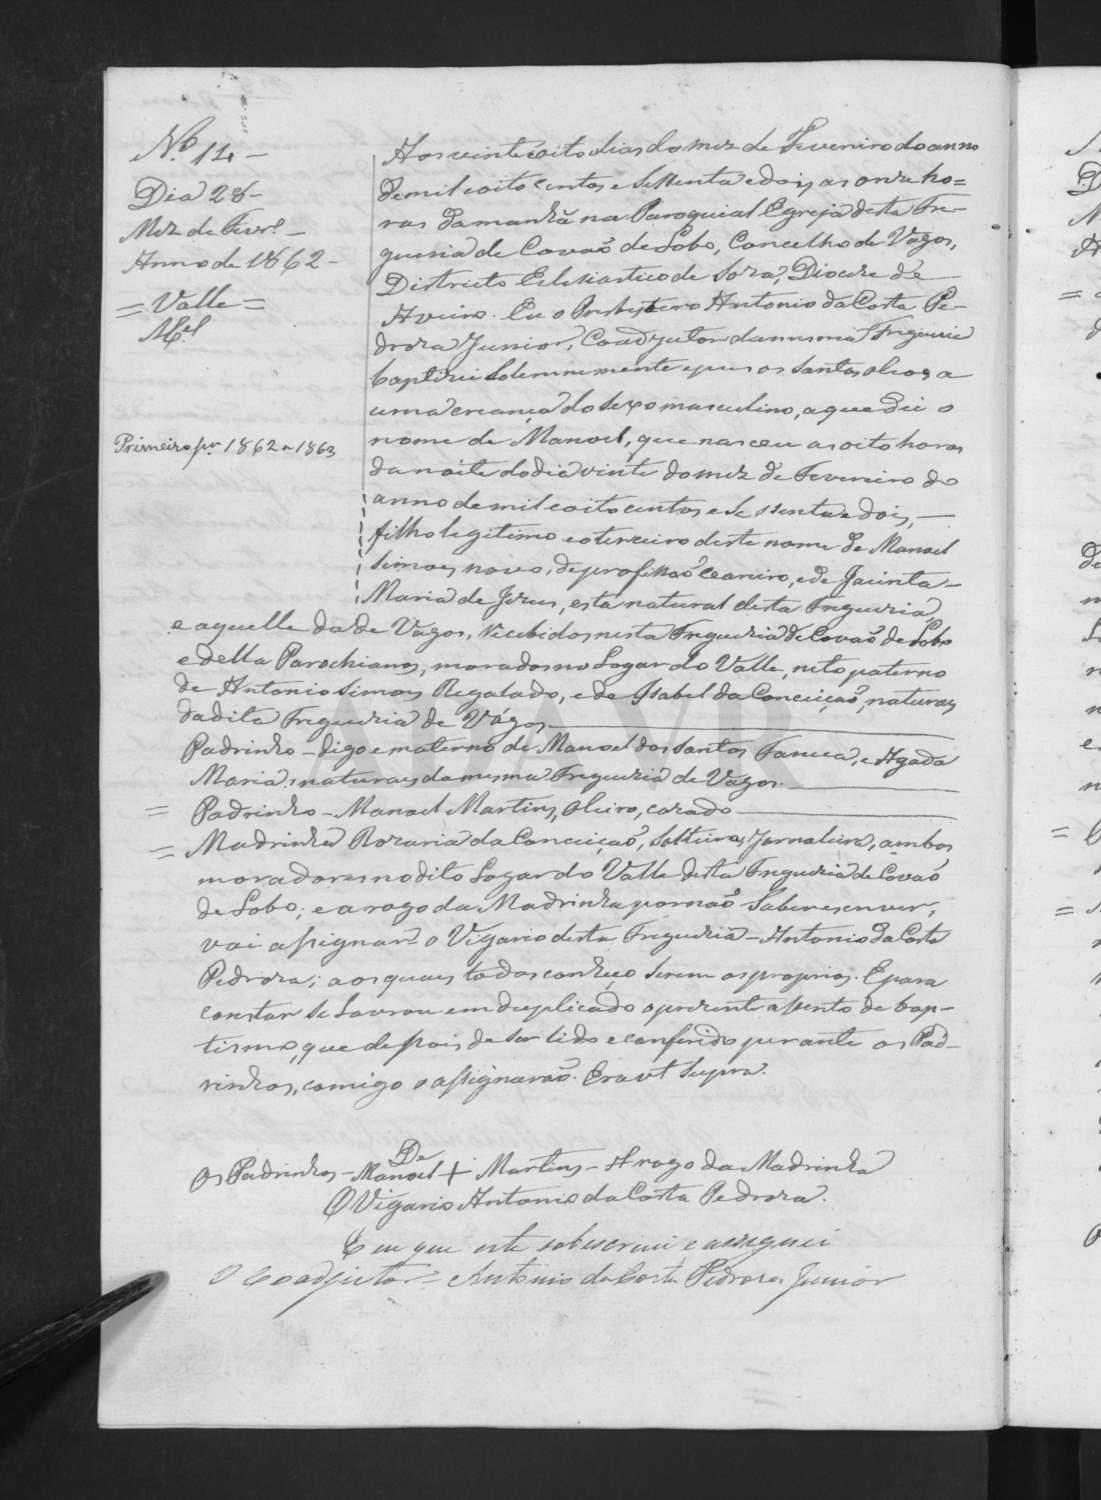 N.º 14 –
Dia 28 –
Mez de Fevr.º –
Anno de 1862 –
= Valle =
M.el
Primeiro pr 1862 a 1863
Aos vinte e oito dias do mez de Fevereiro do anno
de mil e oito centos e sessenta e dois, as onze ho=
ras da manhã na Paroquial Egreja desta Fre-
guesia de Covaõ de Lobo, Concelho de Vagos,
Districto Eclesiastico de Soza, Diocese de
Aveiro. Eu o Presbytero Antonio da Costa Pe-
droza Junior, Coadjutor da mesma Freguesia
baptizei solemnemente e puz os santos oleos a
uma creança do sexo masculino, a que dei o
nome de Manoel, que nasceu as oito horas
da noite do dia vinte do mez de Fevereiro do
anno de mil e oito centos e sessenta e dois, –
filho legitimo e o terceiro deste nome de Manoel
Simoes novo, de profissaõ , e de Jacinta –
Maria de Jezus, esta natural desta Freguezia,
e aquelle da de Vagos, recebidos nesta Freguezia de Covaõ de Lobo
e della Parochianos, moradores no Logar do Valle, neto paterno
de Antonio Simoes Regalado, e de Isabel da Conceiçaõ, naturaes
da dita Freguezia de Vágos
Padrinho – digo e materno de Manoel dos Santos Faneca, e Agada
Maria, naturaes da mesma Freguezia de Vagos.
= Padrinho – Manoel Martins, Oleiro, cazado
= Madrinha Rozaria da Conceiçaõ, Solteira, Jornaleira, ambos
moradores no dito Logar do Valle desta Freguezia de Covaõ
de Lobo; e a rogo da Madrinha por naõ Saber escrever,
vai assignar o Vigario desta Freguezia – Antonio da Costa
Pedroza; aos quaes todos conheço serem os proprios. E para
constar se Lavrou em duplicado o prezente assento de bap-
tismo, que depois de ser lido e conferido perante os Pad-
rinhos, comigo o assignaraõ. Era ut Supra.
De
Os Padrinhos – Manoel + Martins – A rogo da Madrinha
O Vigario Antonio da Costa Pedroza.
E eu que este subscrevi e assignei
O Coadjutor = Antonio da Costa Pedroza Junior
ADAVR